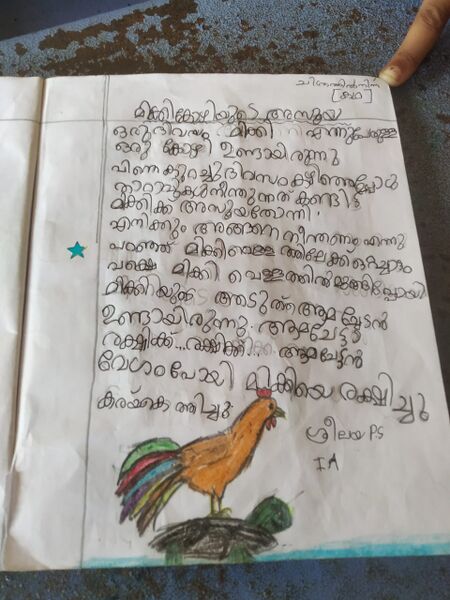 ചിത്രത്തിൽനിന്ന്
[കഥ]
മിക്കികോഴിയുടെ അസൂയ
ഒരു ദിവസം മിക്കി എന്നുപേരുള്ള
ഒരു കോഴി ഉണ്ടായിരുന്നു
പിന്നെ കുറച്ചുദിവസം കഴിഞ്ഞപ്പോൾ
താറാവുകൾ നീന്തുന്നത് കണ്ടിട്ട്
മിക്കിക്ക് അസൂയതോന്നി.
എനിക്കും അങ്ങനെ നീന്തണം എന്നു
പറഞ്ഞ് മിക്കിവെള്ളത്തിലേക്ക് ഒറ്റചാട്ടം
പക്ഷെ മിക്കി വെള്ളത്തിൽ മുങ്ങിപ്പോയി
മിക്കിയുടെ അടുത്ത് ആമചേട്ടൻ
ഉണ്ടായിരുന്നു. ആമചേട്ടാ
രക്ഷിക്ക്... രക്ഷിക്ക്... ആമചേട്ടൻ
വേഗംപോയി മിക്കിയെ രക്ഷിച്ചു
കരയ്ക്കെത്തിച്ചു.
ശ്രീലയ P.S
I A